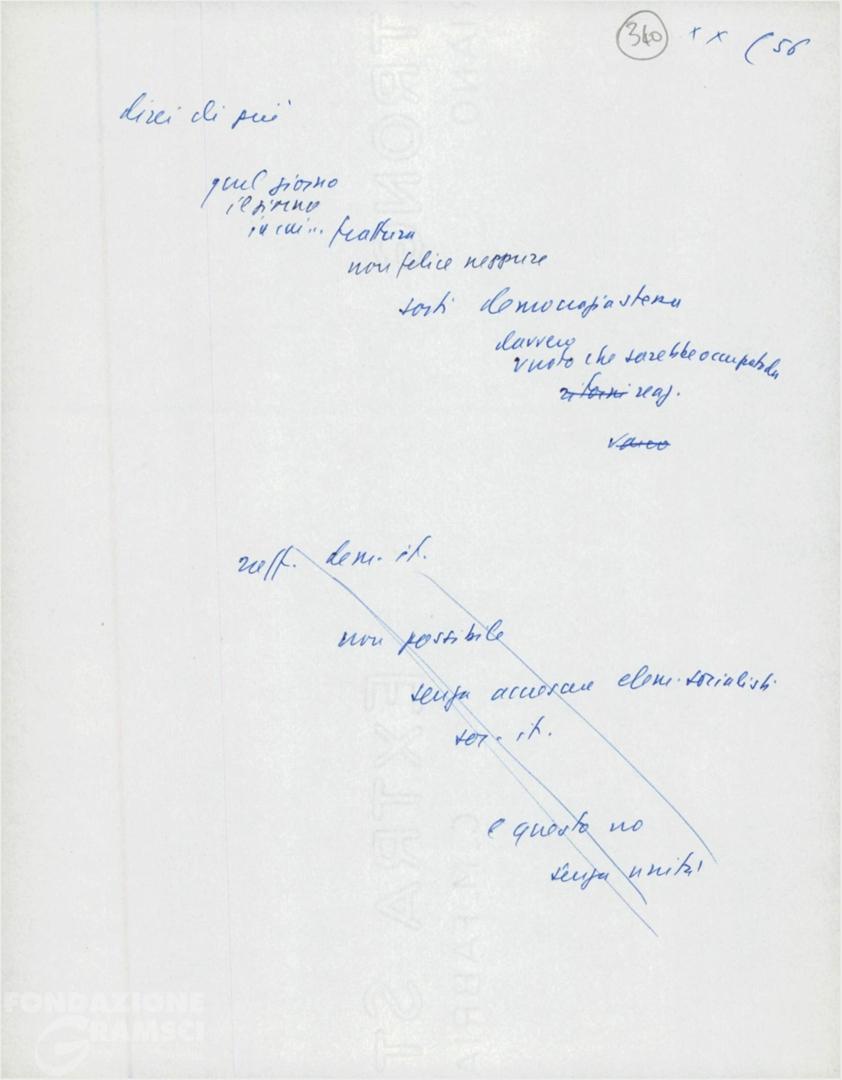 340 x x ( 56
direi di più
quel giorno
il giorno
in cui... frattura
non felice neppure
sorti democrazia stessa
davvero
vuoto che sarebbe occupato da
ritorni reaz.
varco
raff. dem. it.
non possibile
senza accrescere elem. socialisti
soc. it.
e questo no
senza unità
FONDAZIONE
GRAMSCI